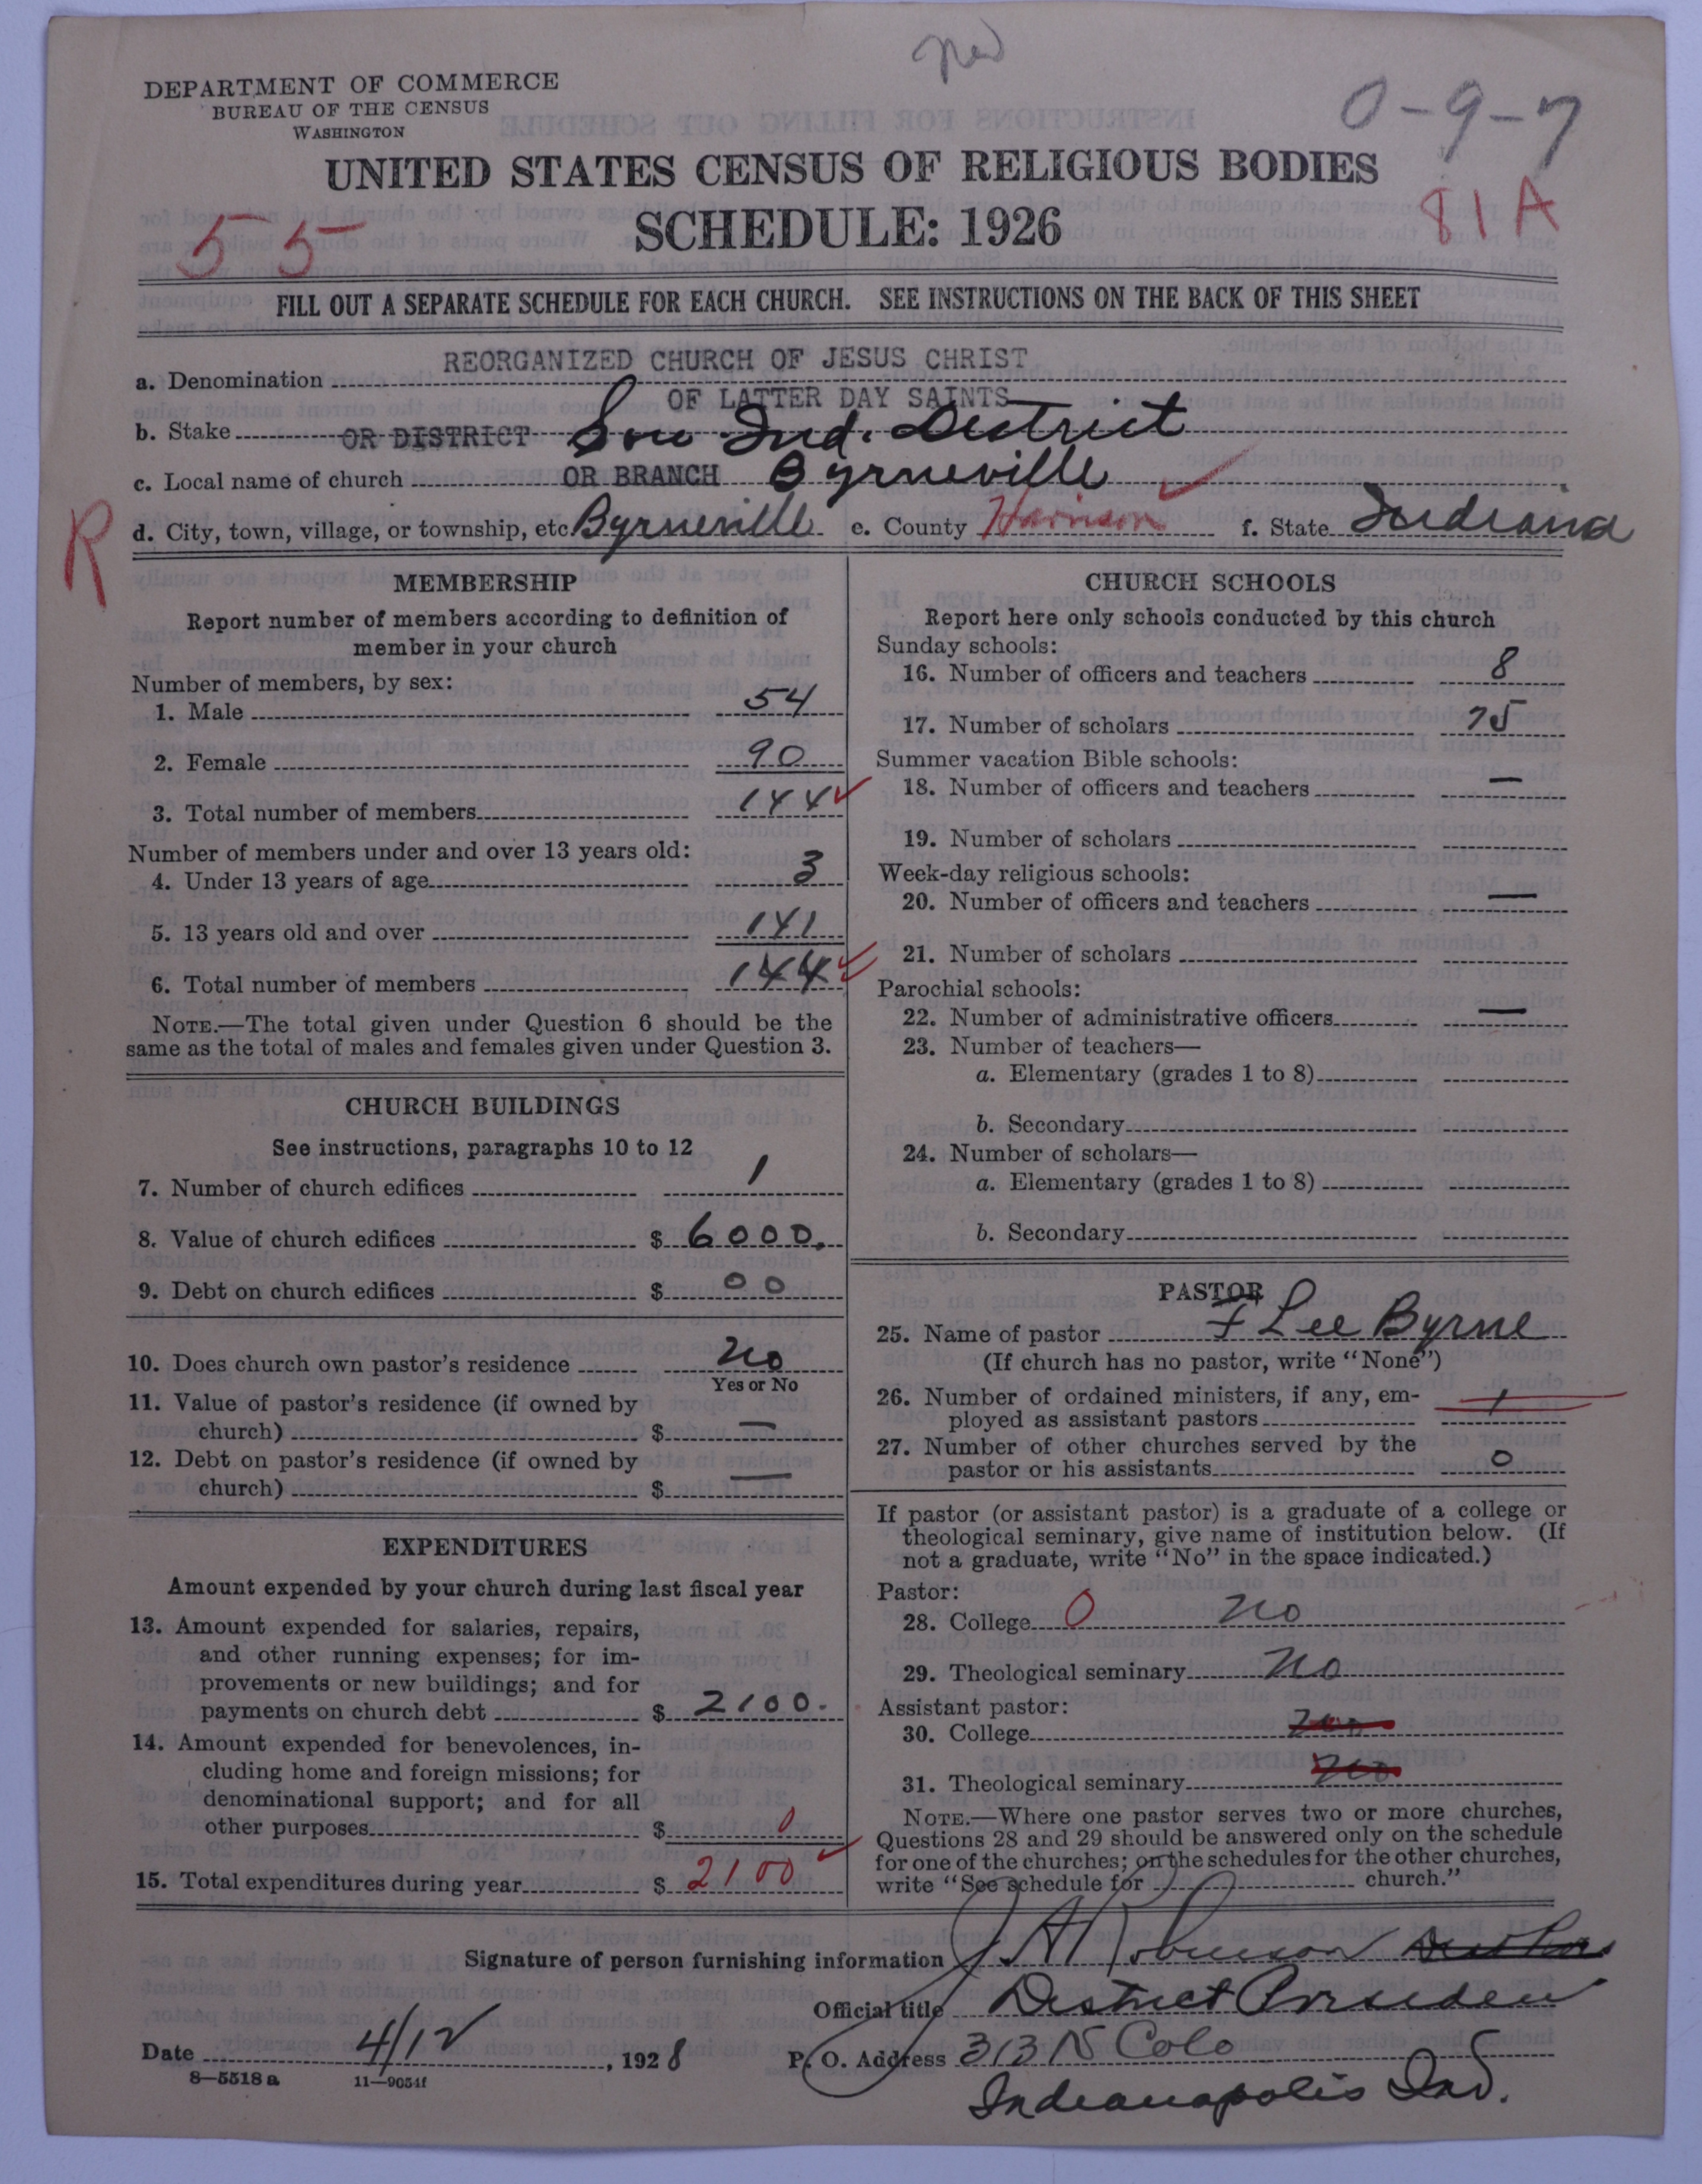 DEPARTMENT OF COMMERCE
BUREAU OF THE CENSUS
WASHINGTON
0-9-7
UNITED STATES CENSUS OF RELIGIOUS BODIES
SCHEDULE: 1926
55
81A
FILL OUT A SEPARATE SCHEDULE FOR EACH CHURCH. SEE INSTRUCTIONS ON THE BACK OF THIS SHEET
a. Denomination REORGANIZED CHURCH OF JESUS CHRIST
OF LATTER DAY SAINTS
b. Stake OR DISTRICT Sou Ind. District
c. Local name of church OR BRANCH Byrneville
R
d. City, town, village, or township, etc. Byrneville e. County Harrison f. State Indiana
MEMBERSHIP
Report number of members according to definition of
member in your church
Number of members, by sex:
1. Male 54
2. Female 90
3. Total number of members 144
Number of members under and over 13 years old:
4. Under 13 years of age 3
5. 13 years old and over 141
6. Total number of members 144
NOTE.—The total given under Question 6 should be the
same as the total of males and females given under Question 3.
CHURCH BUILDINGS
See instructions, paragraphs 10 to 12
7. Number of church edifices 1
8. Value of church edifices $ 6000.
9. Debt on church edifices $ 00
10. Does church own pastor's residence No
Yes or No
11. Value of pastor's residence (if owned by
church) $ —
12. Debt on pastor's residence (if owned by
church) $ —
EXPENDITURES
Amount expended by your church during last fiscal year
13. Amount expended for salaries, repairs,
and other running expenses; for im-
provements or new buildings; and for
payments on church debt $ 2100.
14. Amount expended for benevolences, in-
cluding home and foreign missions; for
denominational support; and for all
other purposes $ 0
15. Total expenditures during year $ 2100
CHURCH SCHOOLS
Report here only schools conducted by this church
Sunday schools:
16. Number of officers and teachers 8
17. Number of scholars 75
Summer vacation Bible schools:
18. Number of officers and teachers —
19. Number of scholars
Week-day religious schools:
20. Number of officers and teachers —
21. Number of scholars
Parochial schools:
22. Number of administrative officers —
23. Number of teachers—
a. Elementary (grades 1 to 8)
b. Secondary
24. Number of scholars—
a. Elementary (grades 1 to 8)
b. Secondary
PASTOR
25. Name of pastor F Lee Byrne
(If church has no pastor, write "None")
26. Number of ordained ministers, if any, em-
ployed as assistant pastors 1
27. Number of other churches served by the
pastor or his assistants 0
If pastor (or assistant pastor) is a graduate of a college or
theological seminary, give name of institution below. (If
not a graduate, write "No" in the space indicated.)
Pastor:
28. College 0 No
29. Theological seminary No
Assistant pastor:
30. College No
31. Theological seminary No
NOTE.—Where one pastor serves two or more churches,
Questions 28 and 29 should be answered only on the schedule
for one of the churches; on the schedules for the other churches,
write "See schedule for church."
Signature of person furnishing information J A Robinson
Official title District Presiden
Date 4/12, 1928 P. O. Address 313 N Colo
8—5518 a 11—9054f
Indianapolis Ind.